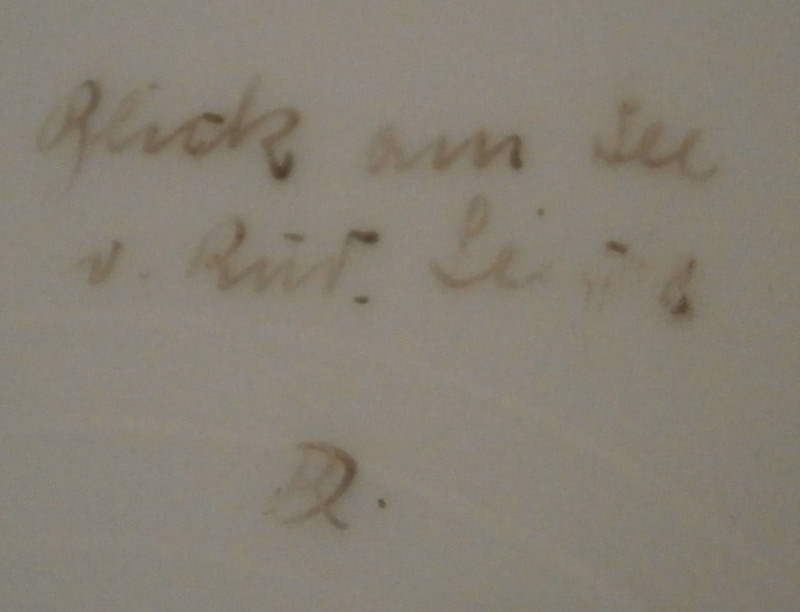 Blick am See
v. Rud.